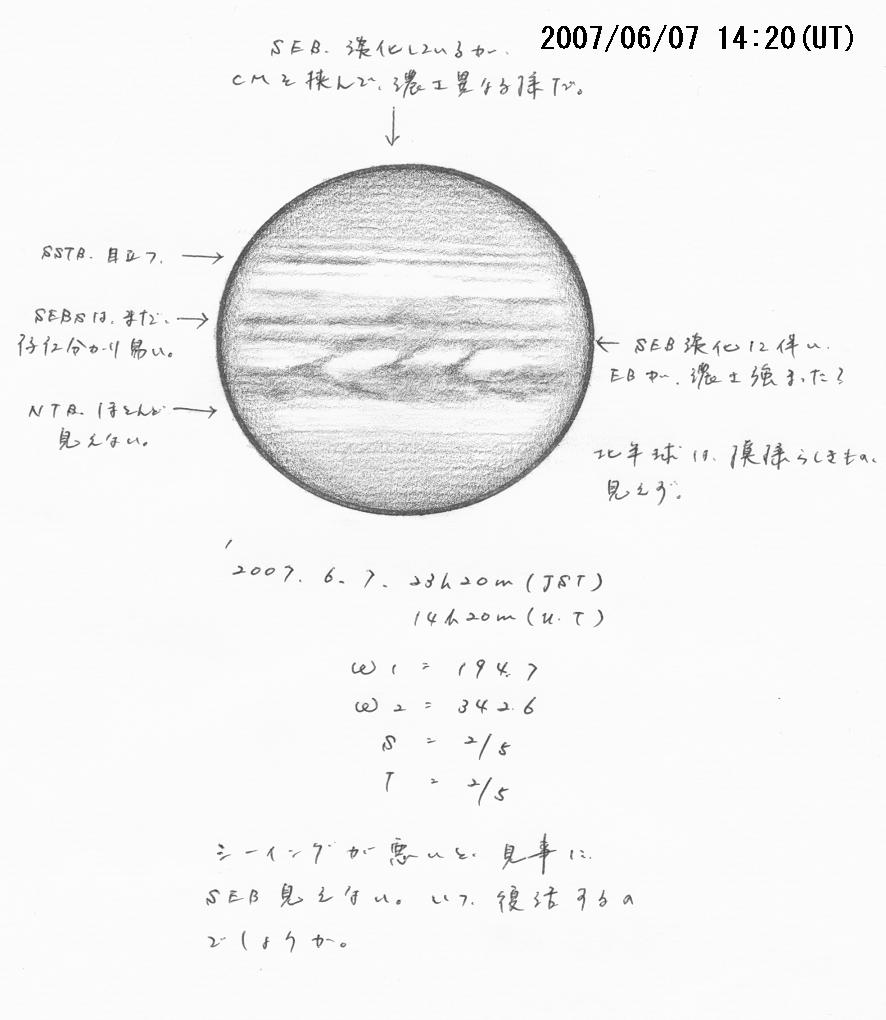 2007/06/07 14:20(UT)
SEB. 淡化しているが、
CMを挟んで、濃さ異なる様だ。
SSTB. 目立つ.
SEBSは、まだ、
存在分かり易い。
NTB. ほとんど
見えない。
SEB淡化に伴い、
EBが、濃さ強まった?
北半球は、模様らしきもの、
見えず。
'2007. 6. 7. 23h20m (JST)
14h20m (U.T)
ω1 = 194.7
ω2 = 342.6
S = 2/5
T = 2/5
シーイングが悪いと、見事に、
SEB見えない。いつ、復活するの
でしょうか。